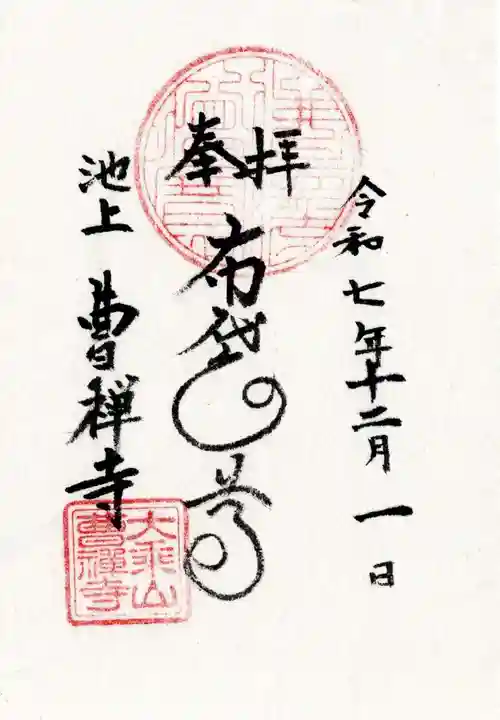 令和七年十二月一日
奉拝
布袋尊
池上
曹禅寺
大乘山
曹禪寺